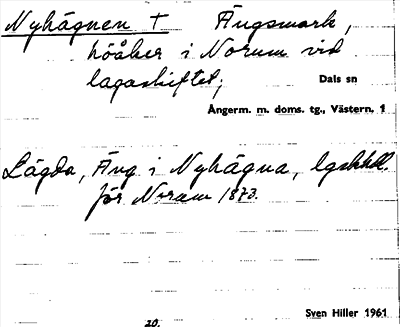 Nyhägnen † Ängsmark,
höåker i Norum vid
lagaskiftet;
Dals sn
Ångerm. m. doms. tg., Västern. 1
Lägda, Äng i Nyhägna, lgskhdl.
för Noram 1873.
Sven Hiller 1961
20.